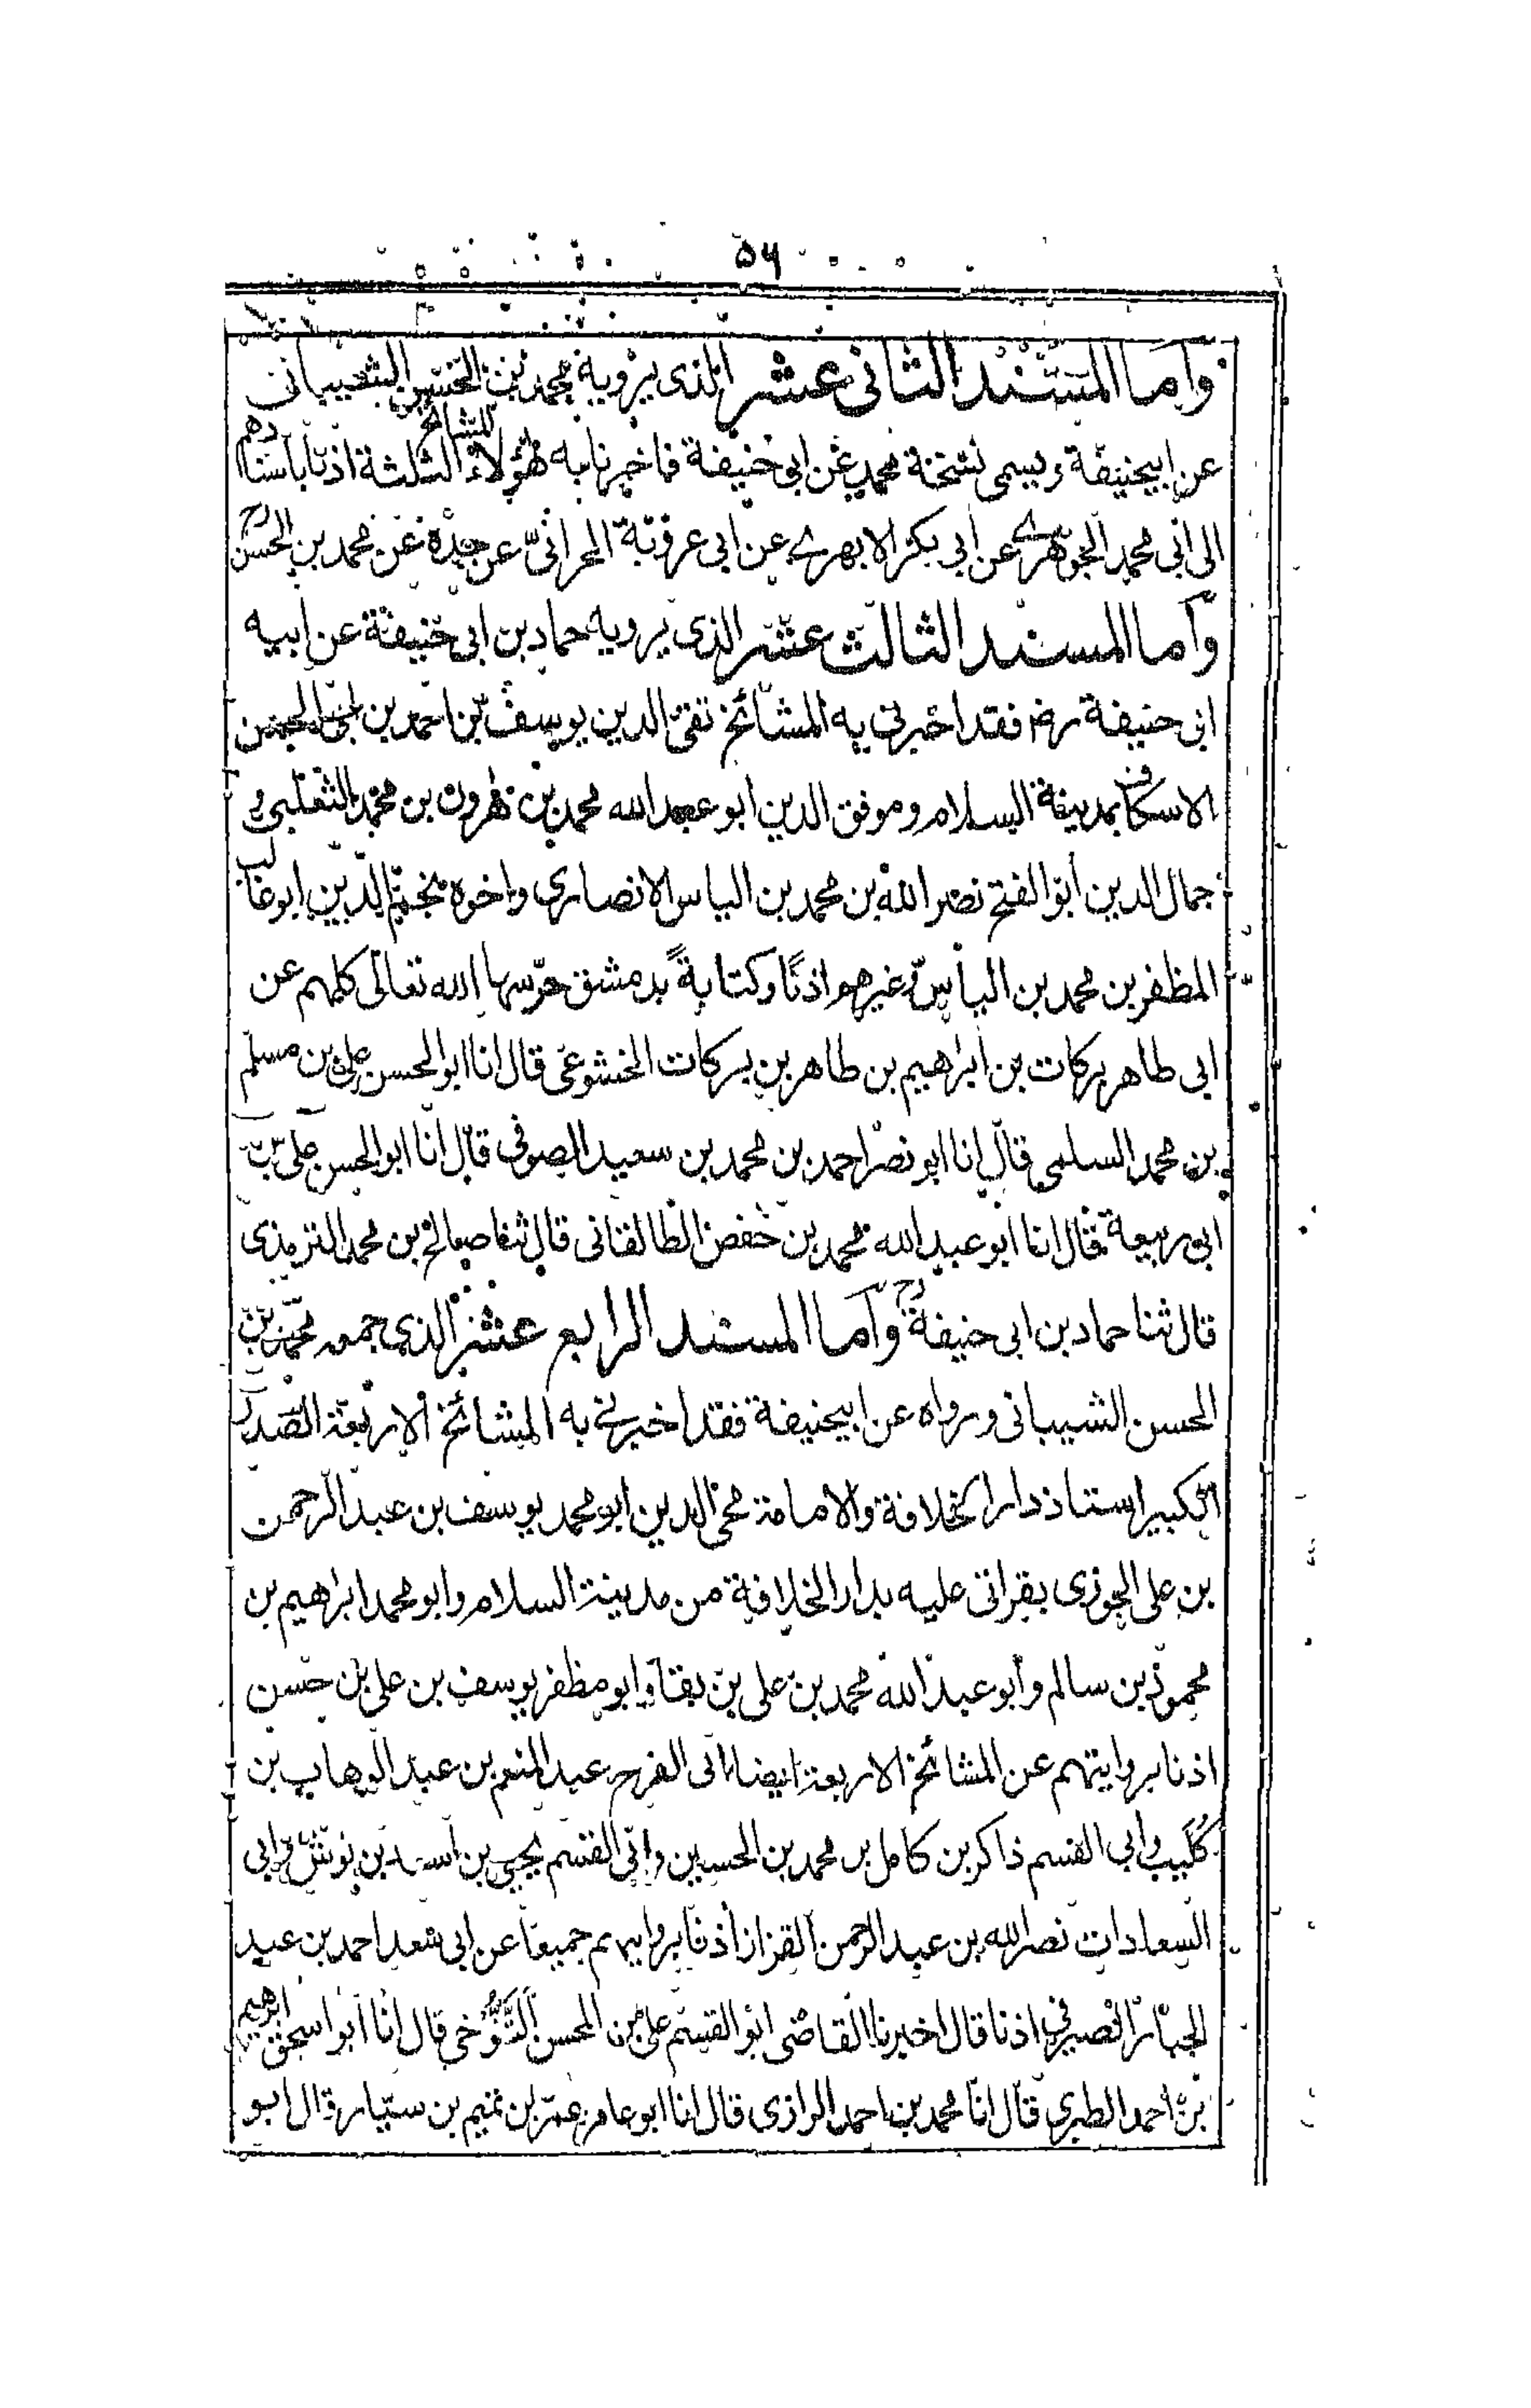 ۵۶
وأما المسند الثانى عشر الذى يرويه محمد بن الحسن الشيبانى
عن ابيحنيفة ويسمى نسخة محمد عن ابى حنيفة فاخبرنا به هؤلاء المشائخ الثلثة اذنا باسنادهم
الى ابى محمد الجوهرى عن ابى بكر الابهرى عن ابى عروبة الحرانى عن جده عن محمد بن الحسن رح
وأما المسند الثالث عشر الذى يرويه حماد بن ابى حنيفة عن ابيه
ابى حنيفة رض فقد اخبرنى به المشائخ تقى الدين يوسف بن احمد بن ابى الحسن
الاسكاف بمدينة السلام وموفق الدين ابو عبد الله محمد بن هرون بن محمد الثعلبى و
جمال الدين ابو الفتح نصر الله بن محمد بن الياس الانصارى واخوه نجم الدين ابو غالب
المظفر بن محمد بن الياس وغيرهم اذنًا وكتابةً بدمشق حرسها الله تعالى كلهم عن
ابى طاهر بركات بن ابراهيم بن طاهر بن بركات الخشوعى قال انا ابو الحسن على بن مسلم
بن محمد السلمى قال انا ابو نصر احمد بن محمد بن سعيد الصوفى قال انا ابو الحسن على بن
ابى ربيعة قال انا ابو عبد الله محمد بن حفص الطالقانى قال ثنا صالح بن محمد الترمذى
قال ثنا حماد بن ابى حنيفة رح وأما المسند الرابع عشر الذى جمعه محمد بن
الحسن الشيبانى ورواه عن ابيحنيفة فقد اخبرنى به المشائخ الاربعة الصدر
الكبير استاذ دار الخلافة والامامة محى الدين ابو محمد يوسف بن عبد الرحمن
بن على الجوزى بقراتى عليه بدار الخلافة من مدينة السلام وابو محمد ابراهيم بن
محمود بن سالم وابو عبد الله محمد بن على بن بقا وابو مظفر يوسف بن على بن حسن
اذنا بروايتهم عن المشائخ الاربعة ايضا ابى الفرج عبد المنعم بن عبد الوهاب بن
كُليب وابى القسم ذاكر بن كامل بن محمد بن الحسين وابى القسم يحيى بن اسد بن نوش وابى
السعادات نصر الله بن عبد الرحمن القزاز اذنا بروايتهم جميعا عن ابى سعد احمد بن عبد
الجبار الصيرفى اذنا قال اخبرنا القاضى ابو القسم على بن المحسن التَّنُوخى قال انا ابو اسحق ابرهيم
بن احمد الطبرى قال انا محمد بن احمد الرازى قال انا ابو عامر عمر بن تميم بن سيار قال ابو